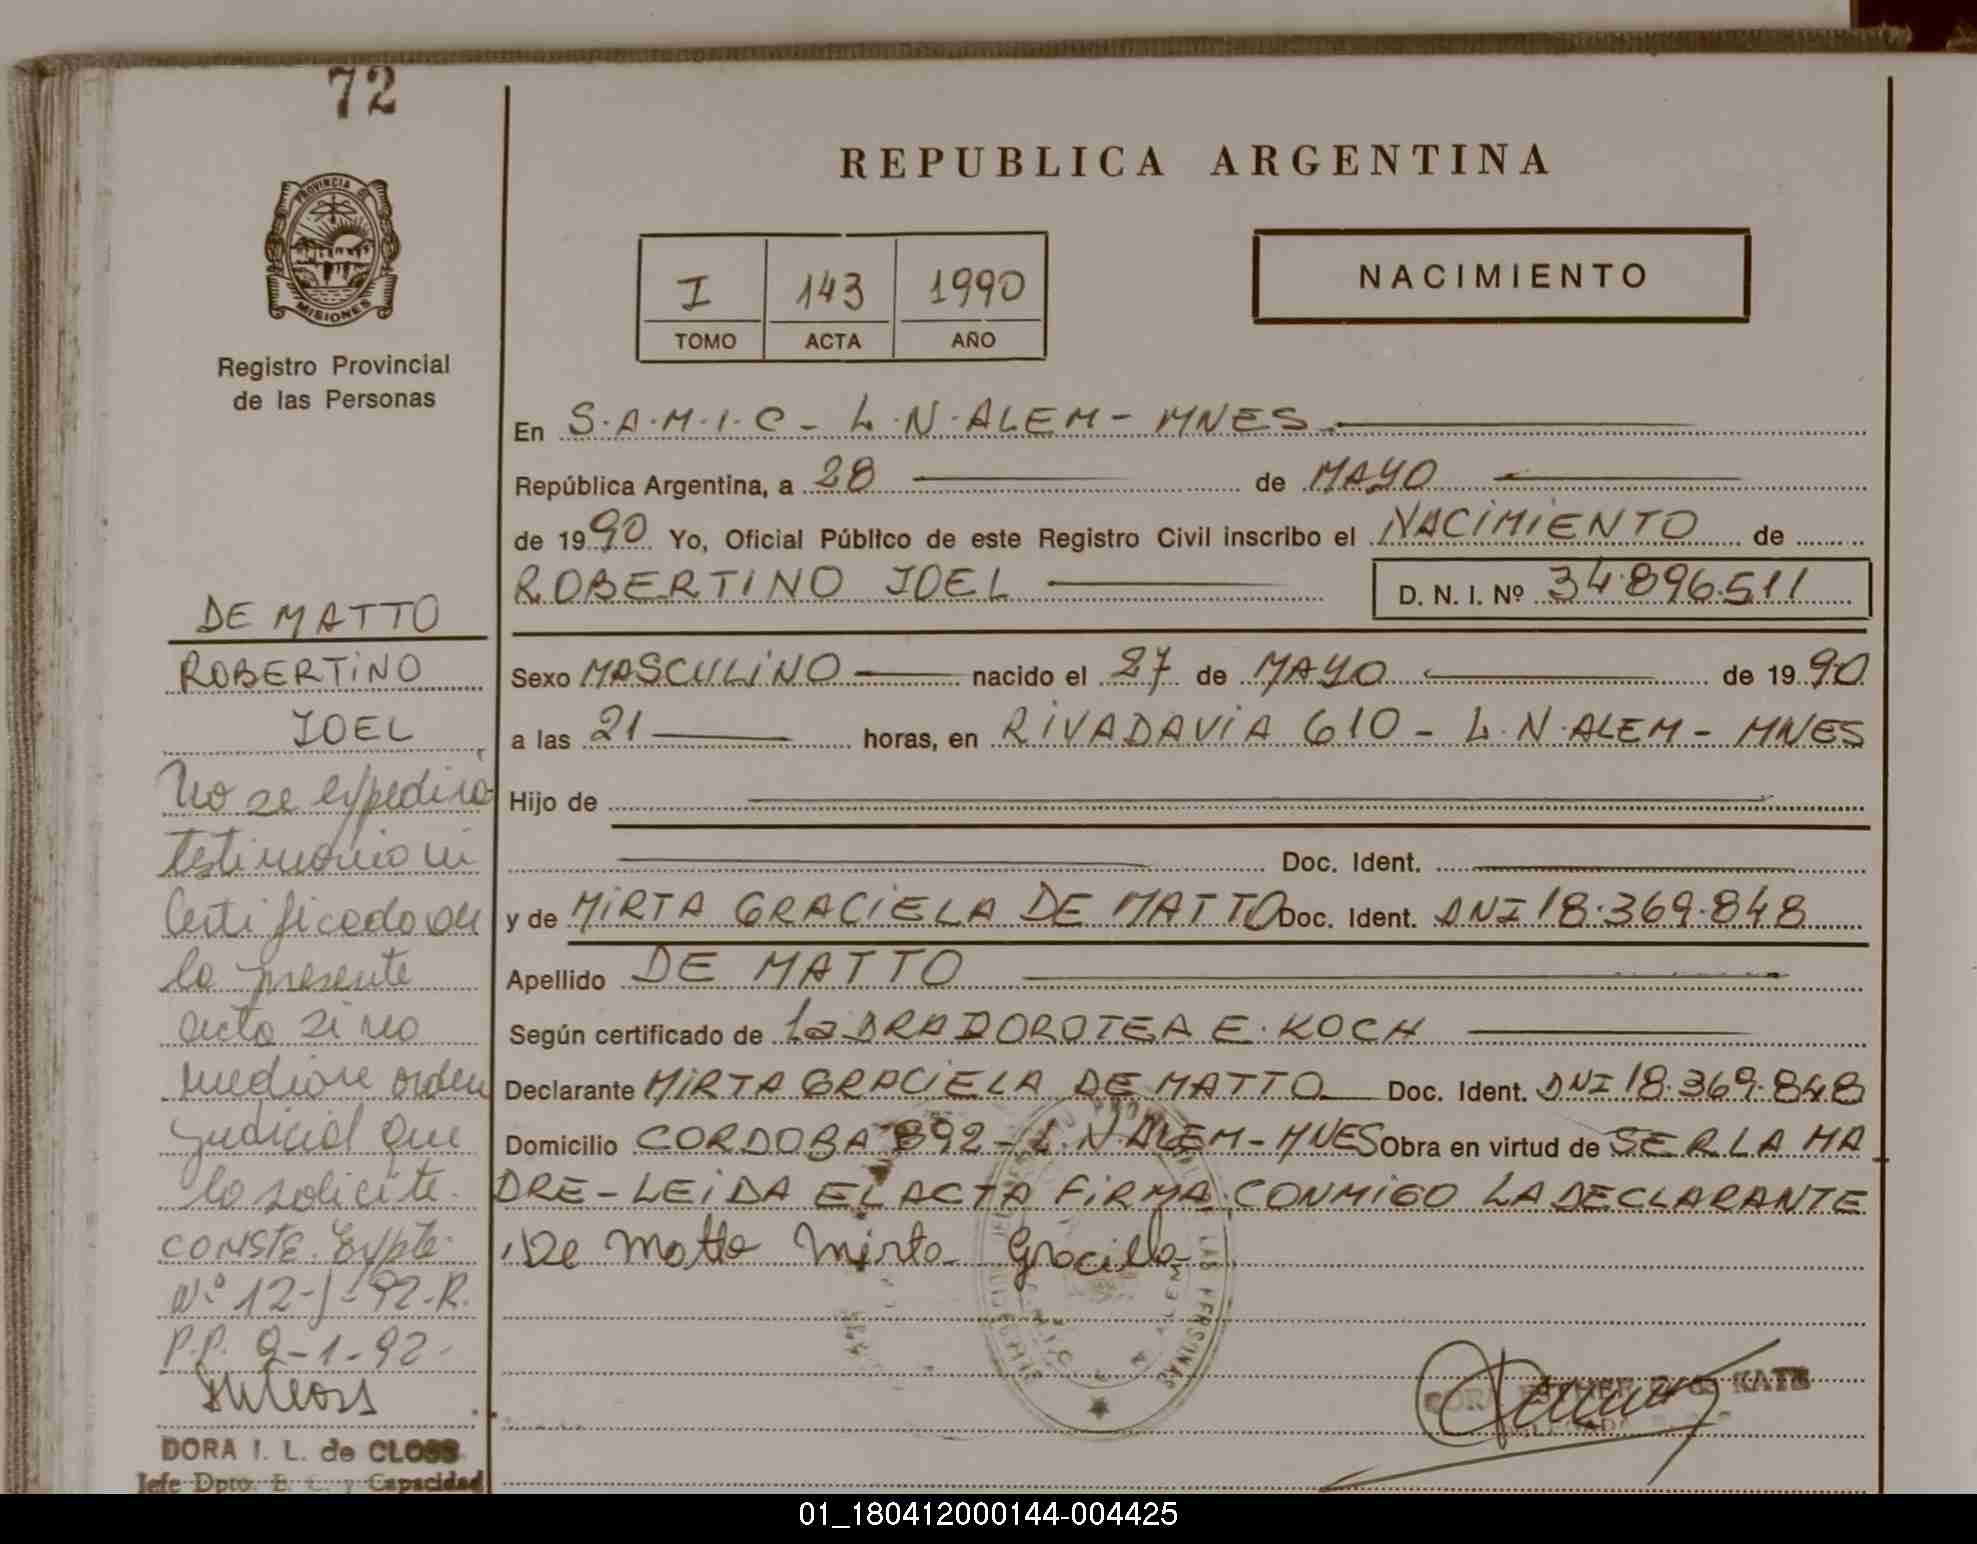 72
PROVINCIA DE
MISIONES
Registro Provincial
de las Personas
REPUBLICA ARGENTINA
I 143 1990
TOMO ACTA AÑO
NACIMIENTO
En S.A.M.I.C - L.N.ALEM - MNES
República Argentina, a 28 de MAYO
de 1990 Yo, Oficial Público de este Registro Civil inscribo el NACIMIENTO de
ROBERTINO JOEL D. N. I. Nº 34.896.511
Sexo MASCULINO nacido el 27 de MAYO de 1990
a las 21 horas, en RIVADAVIA 610 - L.N.ALEM - MNES
Hijo de
Doc. Ident.
y de MIRTA GRACIELA DE MATTO Doc. Ident. DNI 18.369.848
Apellido DE MATTO
Según certificado de la DRA DOROTEA E. KOCH
Declarante MIRTA GRACIELA DE MATTO Doc. Ident. DNI 18.369.848
Domicilio CORDOBA 892 - L.N.ALEM - MNES Obra en virtud de SER LA MA
DRE - LEIDA EL ACTA FIRMA CONMIGO LA DECLARANTE
De Matto Mirta Graciela
DE MATTO
ROBERTINO
JOEL
No se expedirá
testimonio ni
Certificado de
la presente
acta si no
mediare orden
judicial que
lo solicite.
CONSTE. Expte.
Nº 12-J-92-R.
P.P. 9-1-92-
DORA I. L. de CLOSS
Jefe Dpto. E. C. y Capacidad
01_180412000144-004425